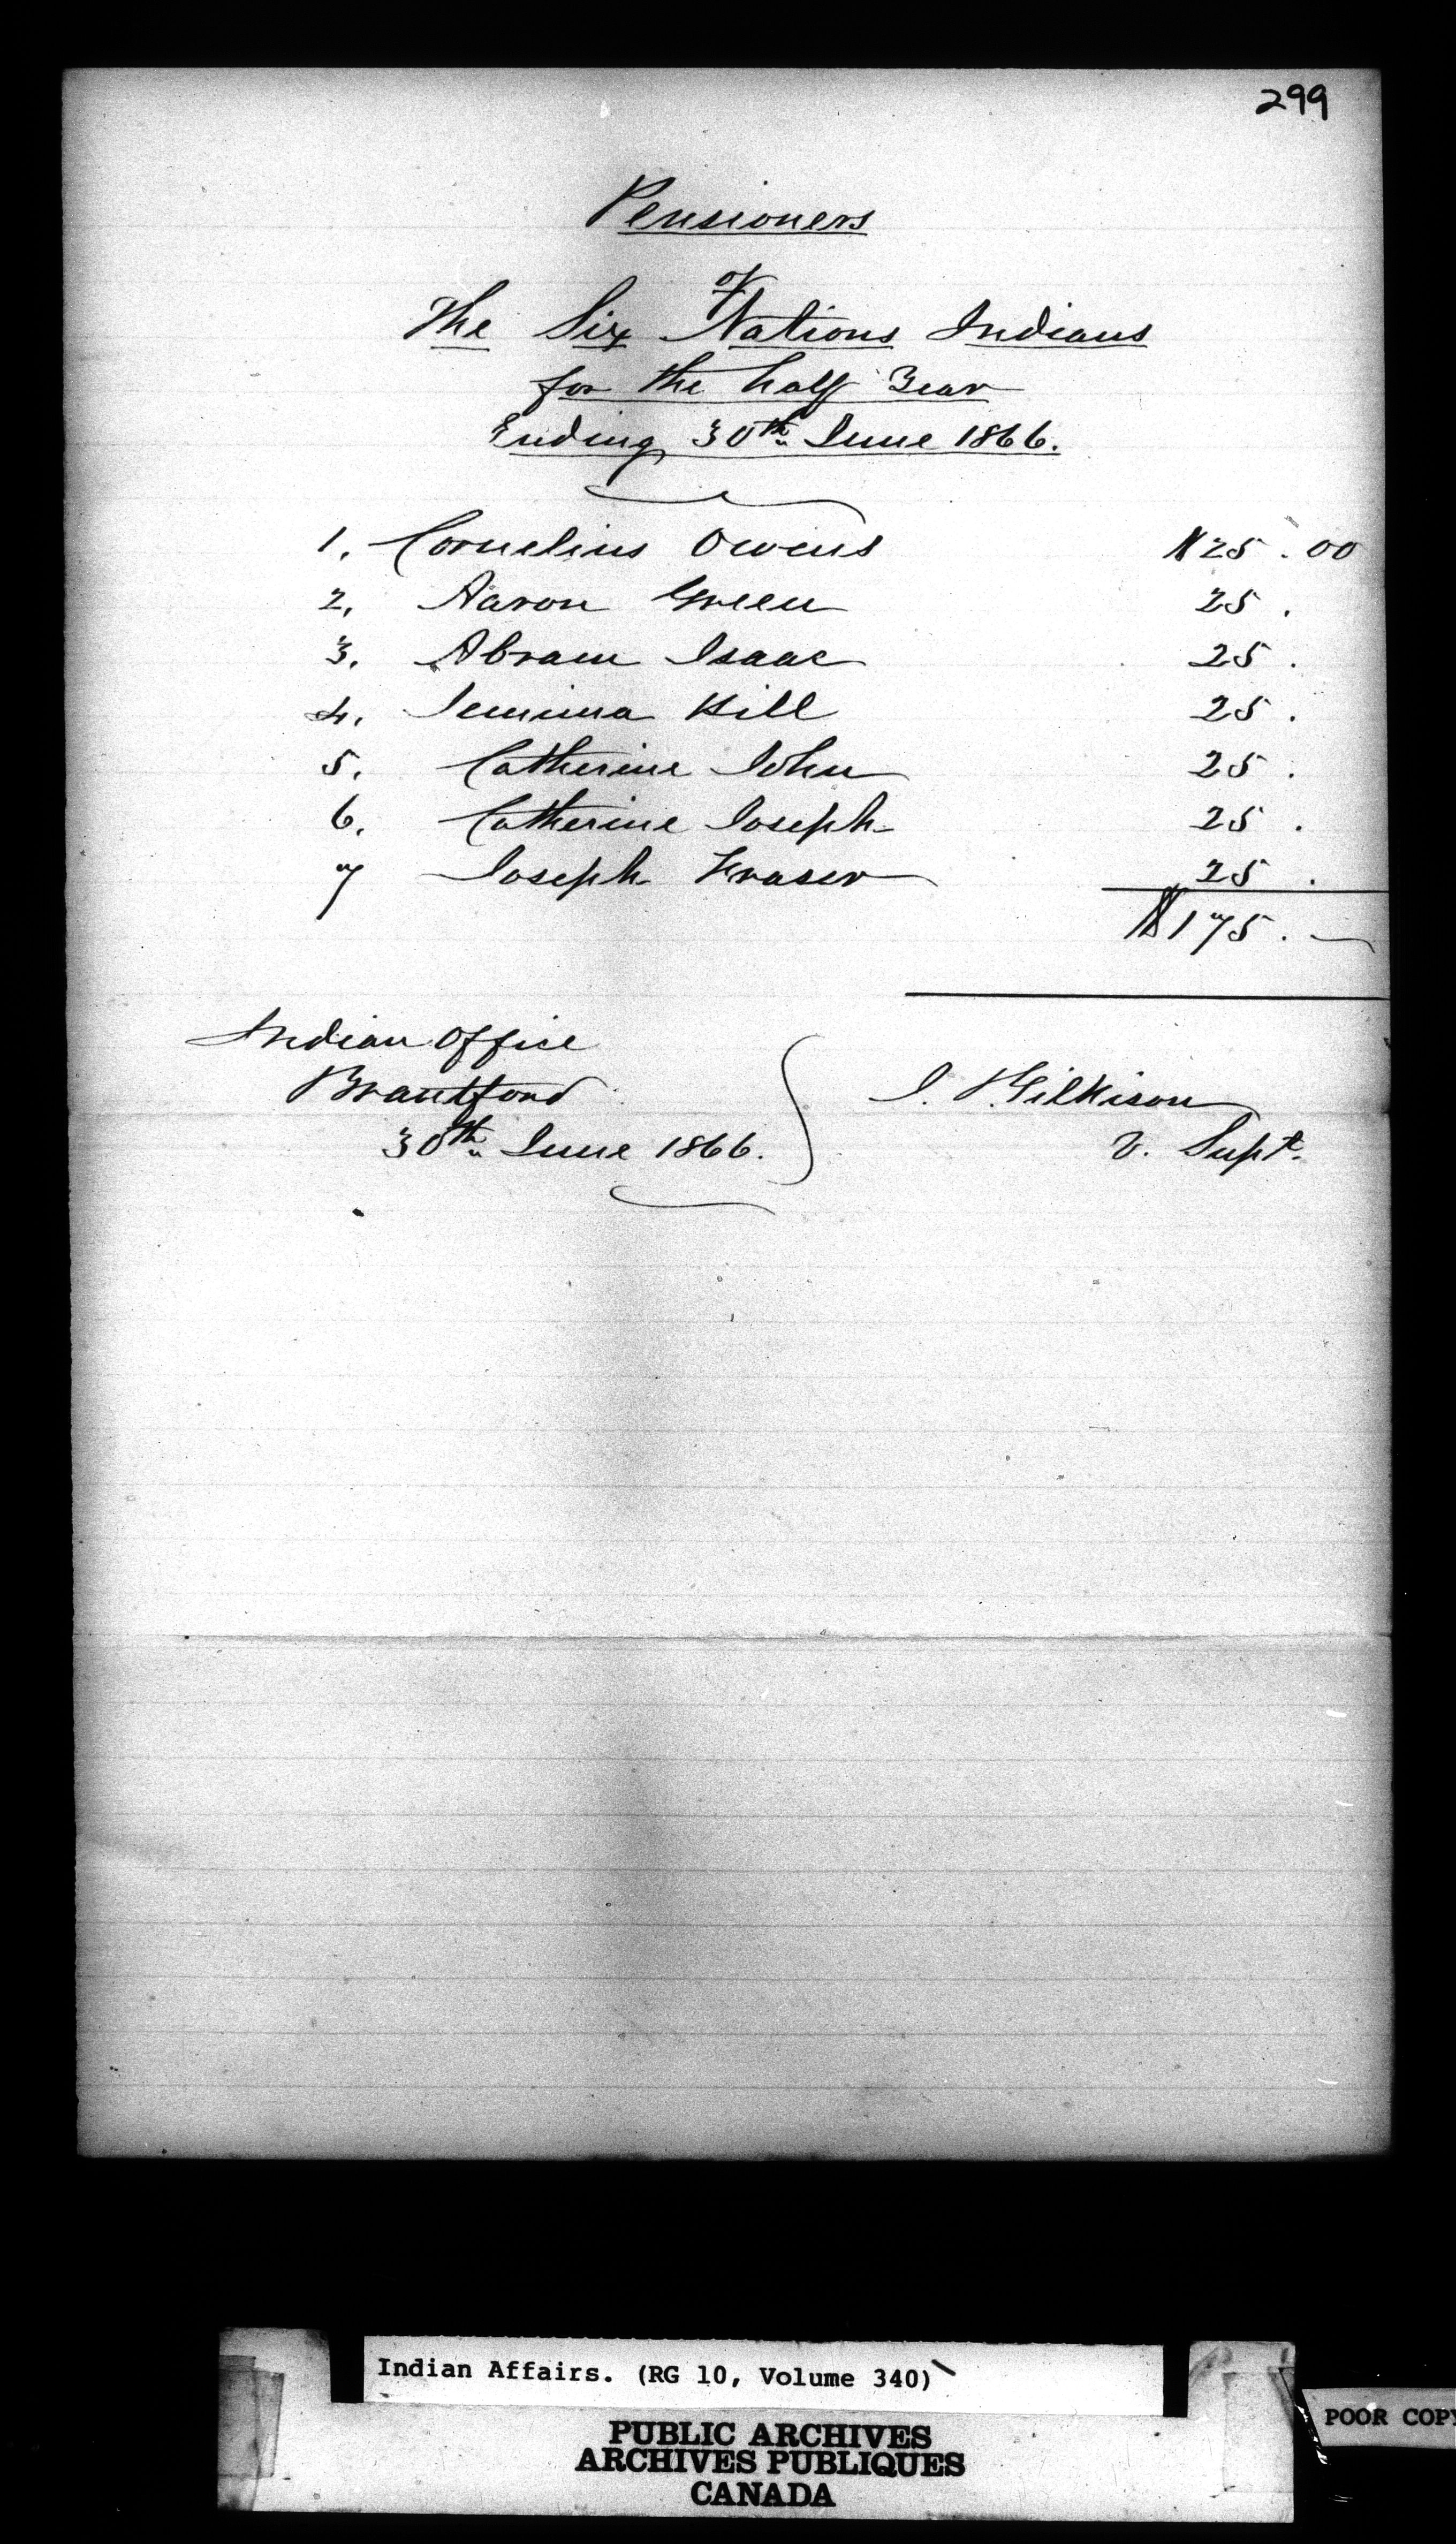 299
Pensioners
of
The Six Nations Indians
for the half Year
Ending 30th June 1866.
1. Cornelius Owens $25.00
2, Aaron Green 25.
3. Abram Isaac 25.
4. Jemima Hill 25.
5. Catherine John 25.
6. Catherine Joseph 25.
7 Joseph Fraser 25.
$175.—
Indian Office
Brantford
30th June 1866.
J. T. Gilkison
V. Supt.
Indian Affairs. (RG 10, Volume 340)
PUBLIC ARCHIVES
ARCHIVES PUBLIQUES
CANADA
POOR COPY